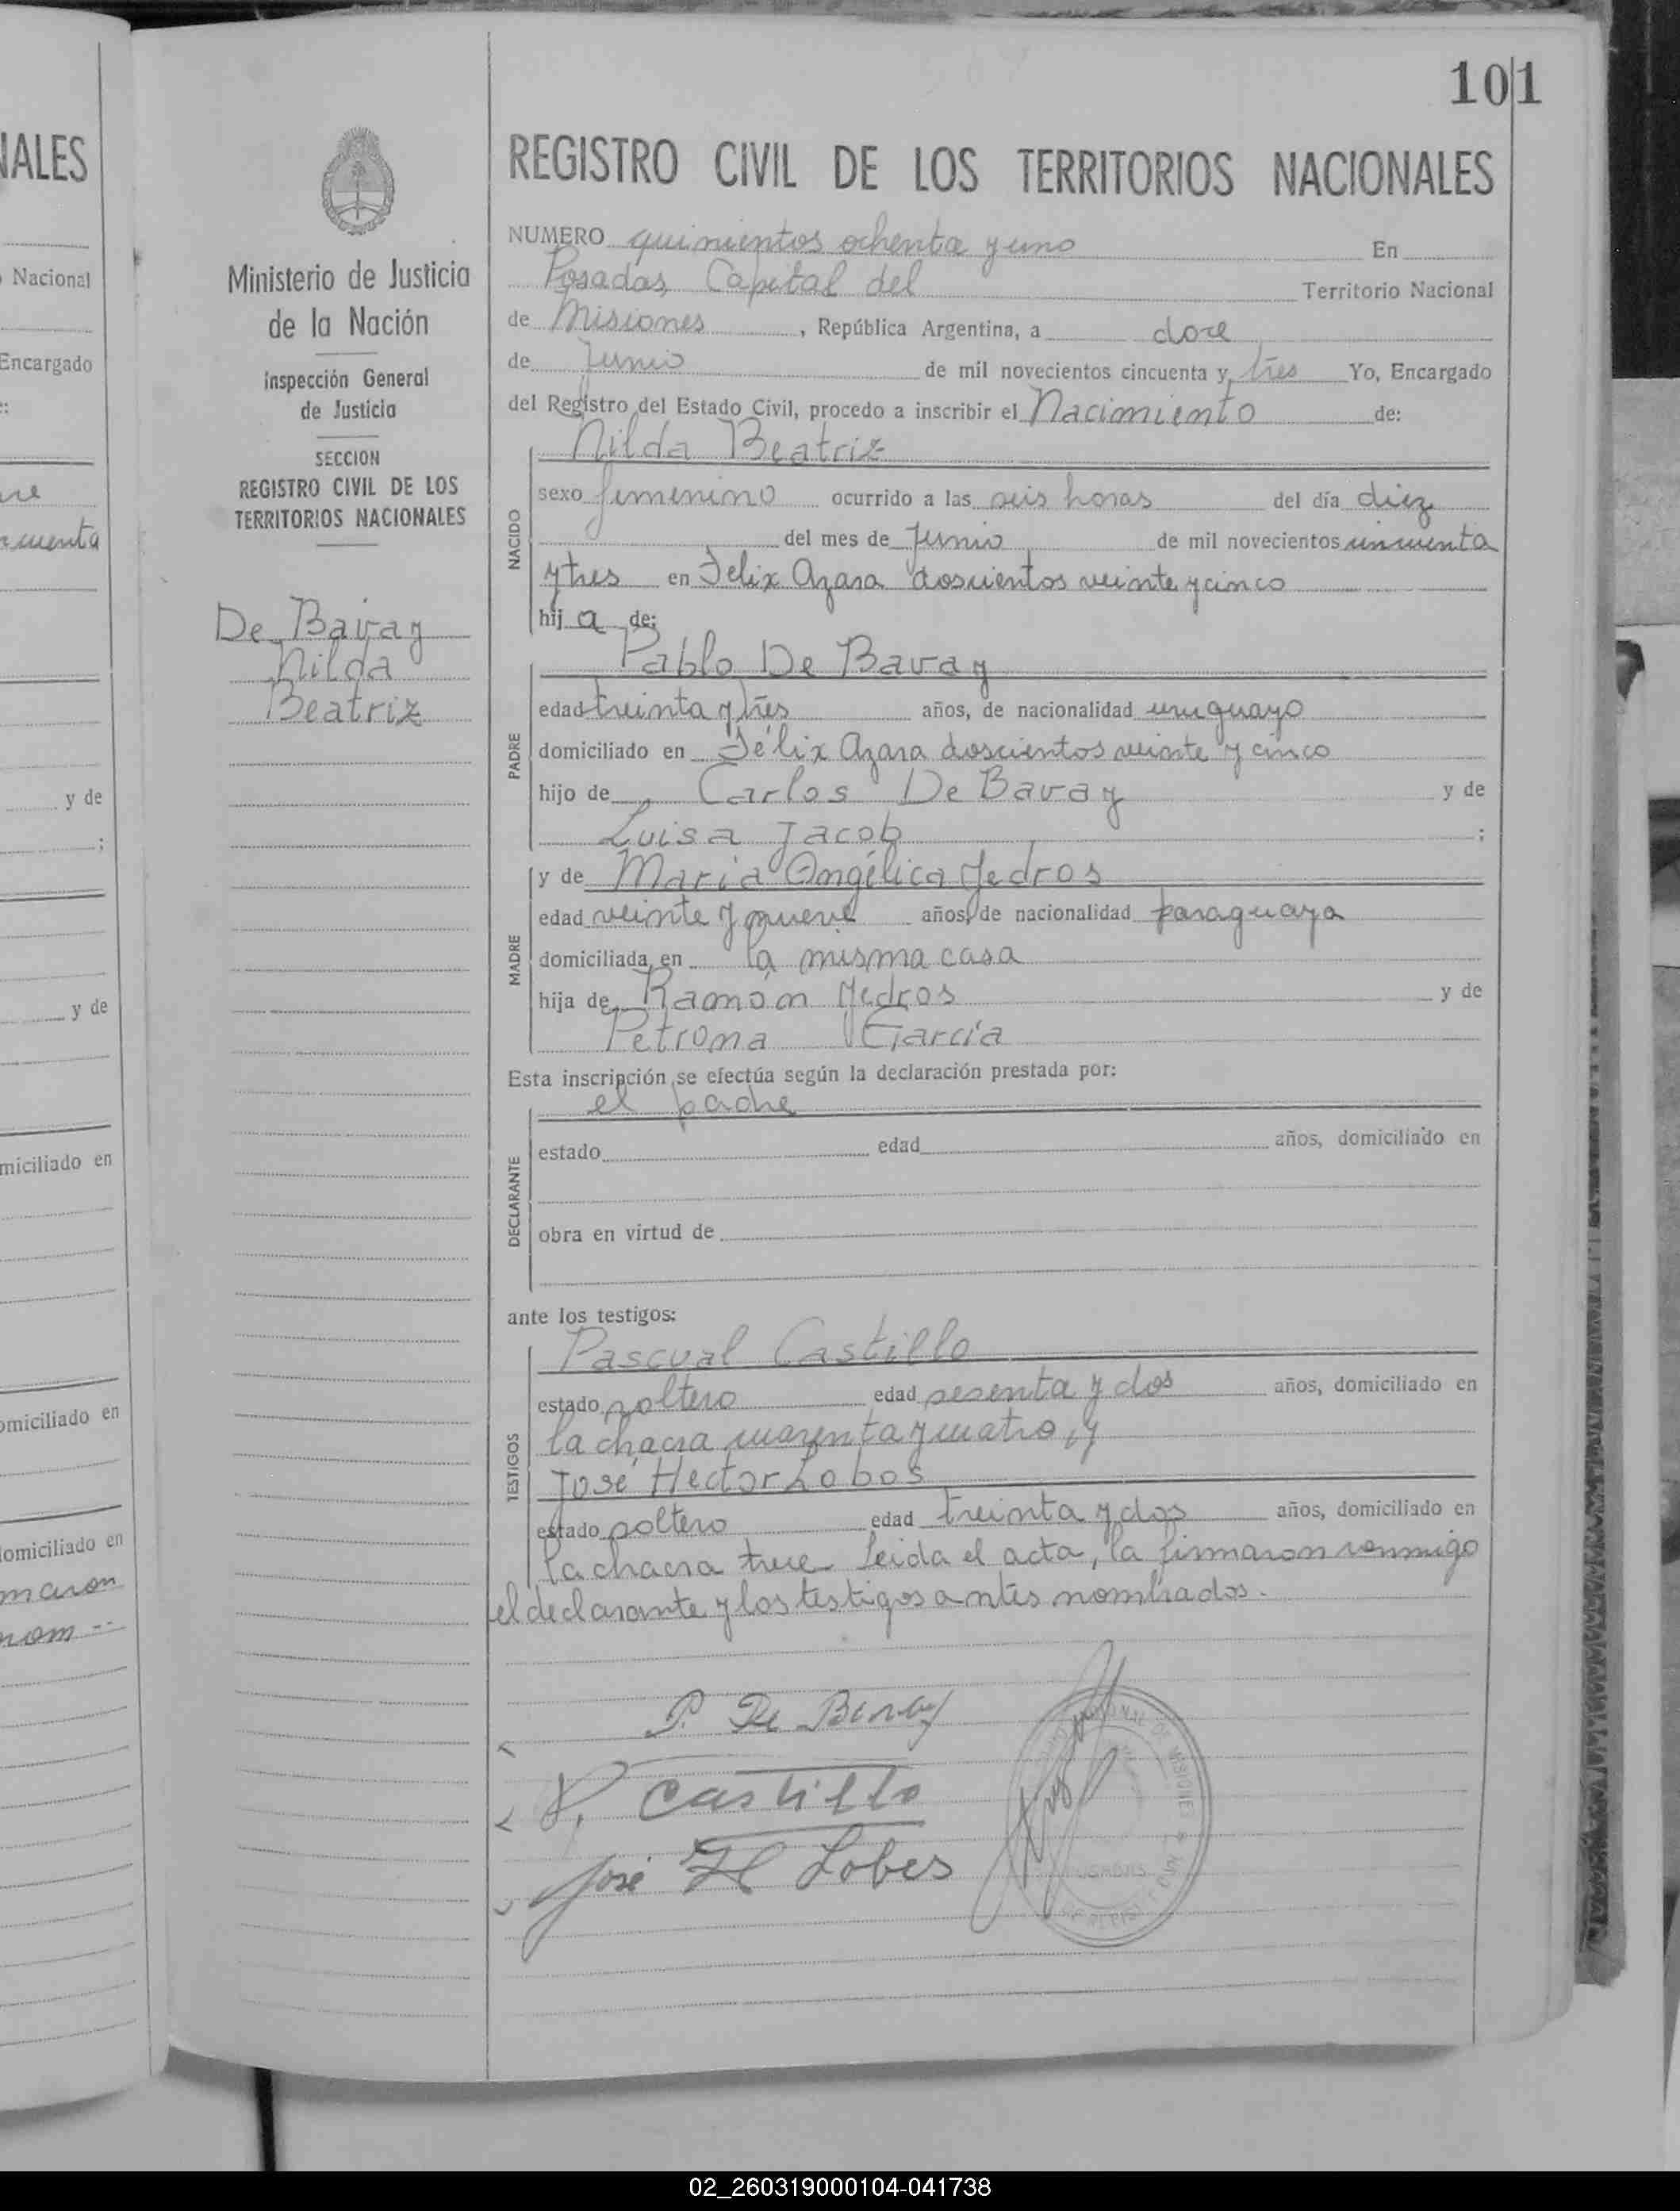 101
REGISTRO CIVIL DE LOS TERRITORIOS NACIONALES
NUMERO quinientos ochenta y uno En
Posadas, Capital del Territorio Nacional
de Misiones, República Argentina, a doce
de Junio de mil novecientos cincuenta y tres Yo, Encargado
del Registro del Estado Civil, procedo a inscribir el Nacimiento de:
Nilda Beatriz
NACIDO
sexo femenino ocurrido a las seis horas del día diez
del mes de Junio de mil novecientos cincuenta
y tres en Felix Azara doscientos veinte y cinco
hij a de:
Pablo De Bavay
PADRE
edad treinta y tres años, de nacionalidad uruguayo
domiciliado en Félix Azara doscientos veinte y cinco
hijo de Carlos De Bavay y de
Luisa Jacob ;
y de María Angélica Yedros
MADRE
edad veinte y nueve años, de nacionalidad paraguaya
domiciliada en la misma casa
hija de Ramón Yedros y de
Petrona García
Esta inscripción se efectúa según la declaración prestada por:
el padre
DECLARANTE
estado edad años, domiciliado en
obra en virtud de
ante los testigos:
Pascual Castillo
TESTIGOS
estado soltero edad sesenta y dos años, domiciliado en
la chacra cuarenta y cuatro, y
José Hector Lobos
estado soltero edad treinta y dos años, domiciliado en
la chacra trece Leida el acta, la firmaron conmigo
el declarante y los testigos antes nombrados.
P. De Bavay
P. Castillo
José H Lobos
Ministerio de Justicia
de la Nación
Inspección General
de Justicia
SECCION
REGISTRO CIVIL DE LOS
TERRITORIOS NACIONALES
De Bavay
Nilda
Beatriz
NALES
Nacional
Encargado
cuenta
y de
;
y de
miciliado en
omiciliado en
domiciliado en
maron
nom --
02_260319000104-041738